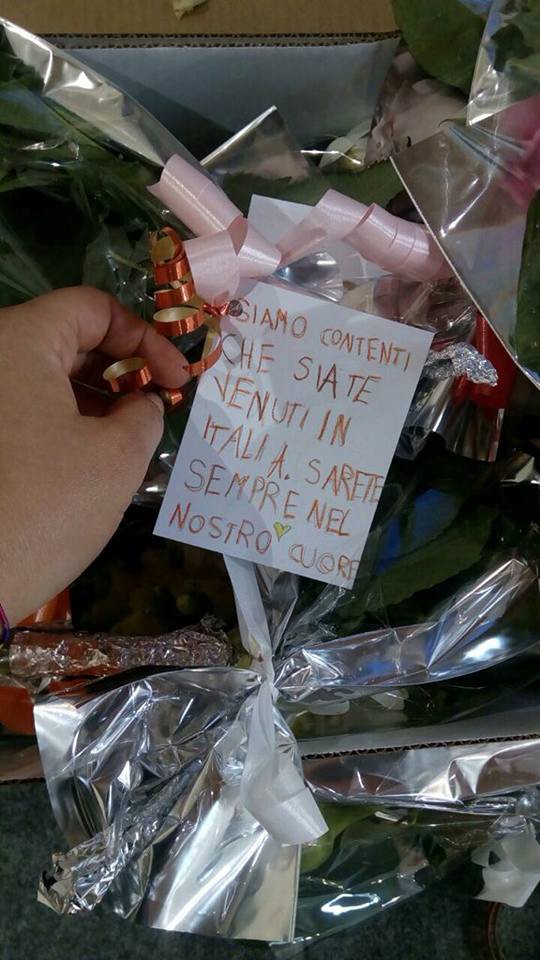 SIAMO CONTENTI
CHE SIATE
VENUTI IN
ITALIA. SARETE
SEMPRE NEL
NOSTRO CUORE